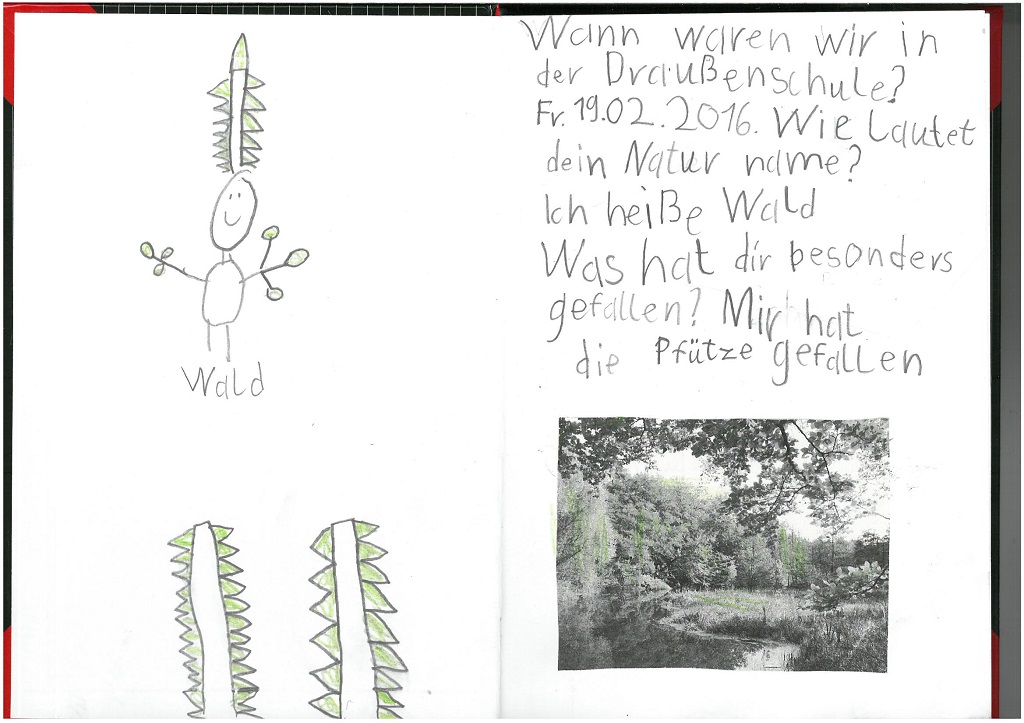 Wald
Wann waren wir in
der Draußenschule?
Fr. 19.02.2016. Wie Lautet
dein Natur name?
Ich heiße Wald
Was hat dir besonders
gefallen? Mir hat
die Pfütze gefallen